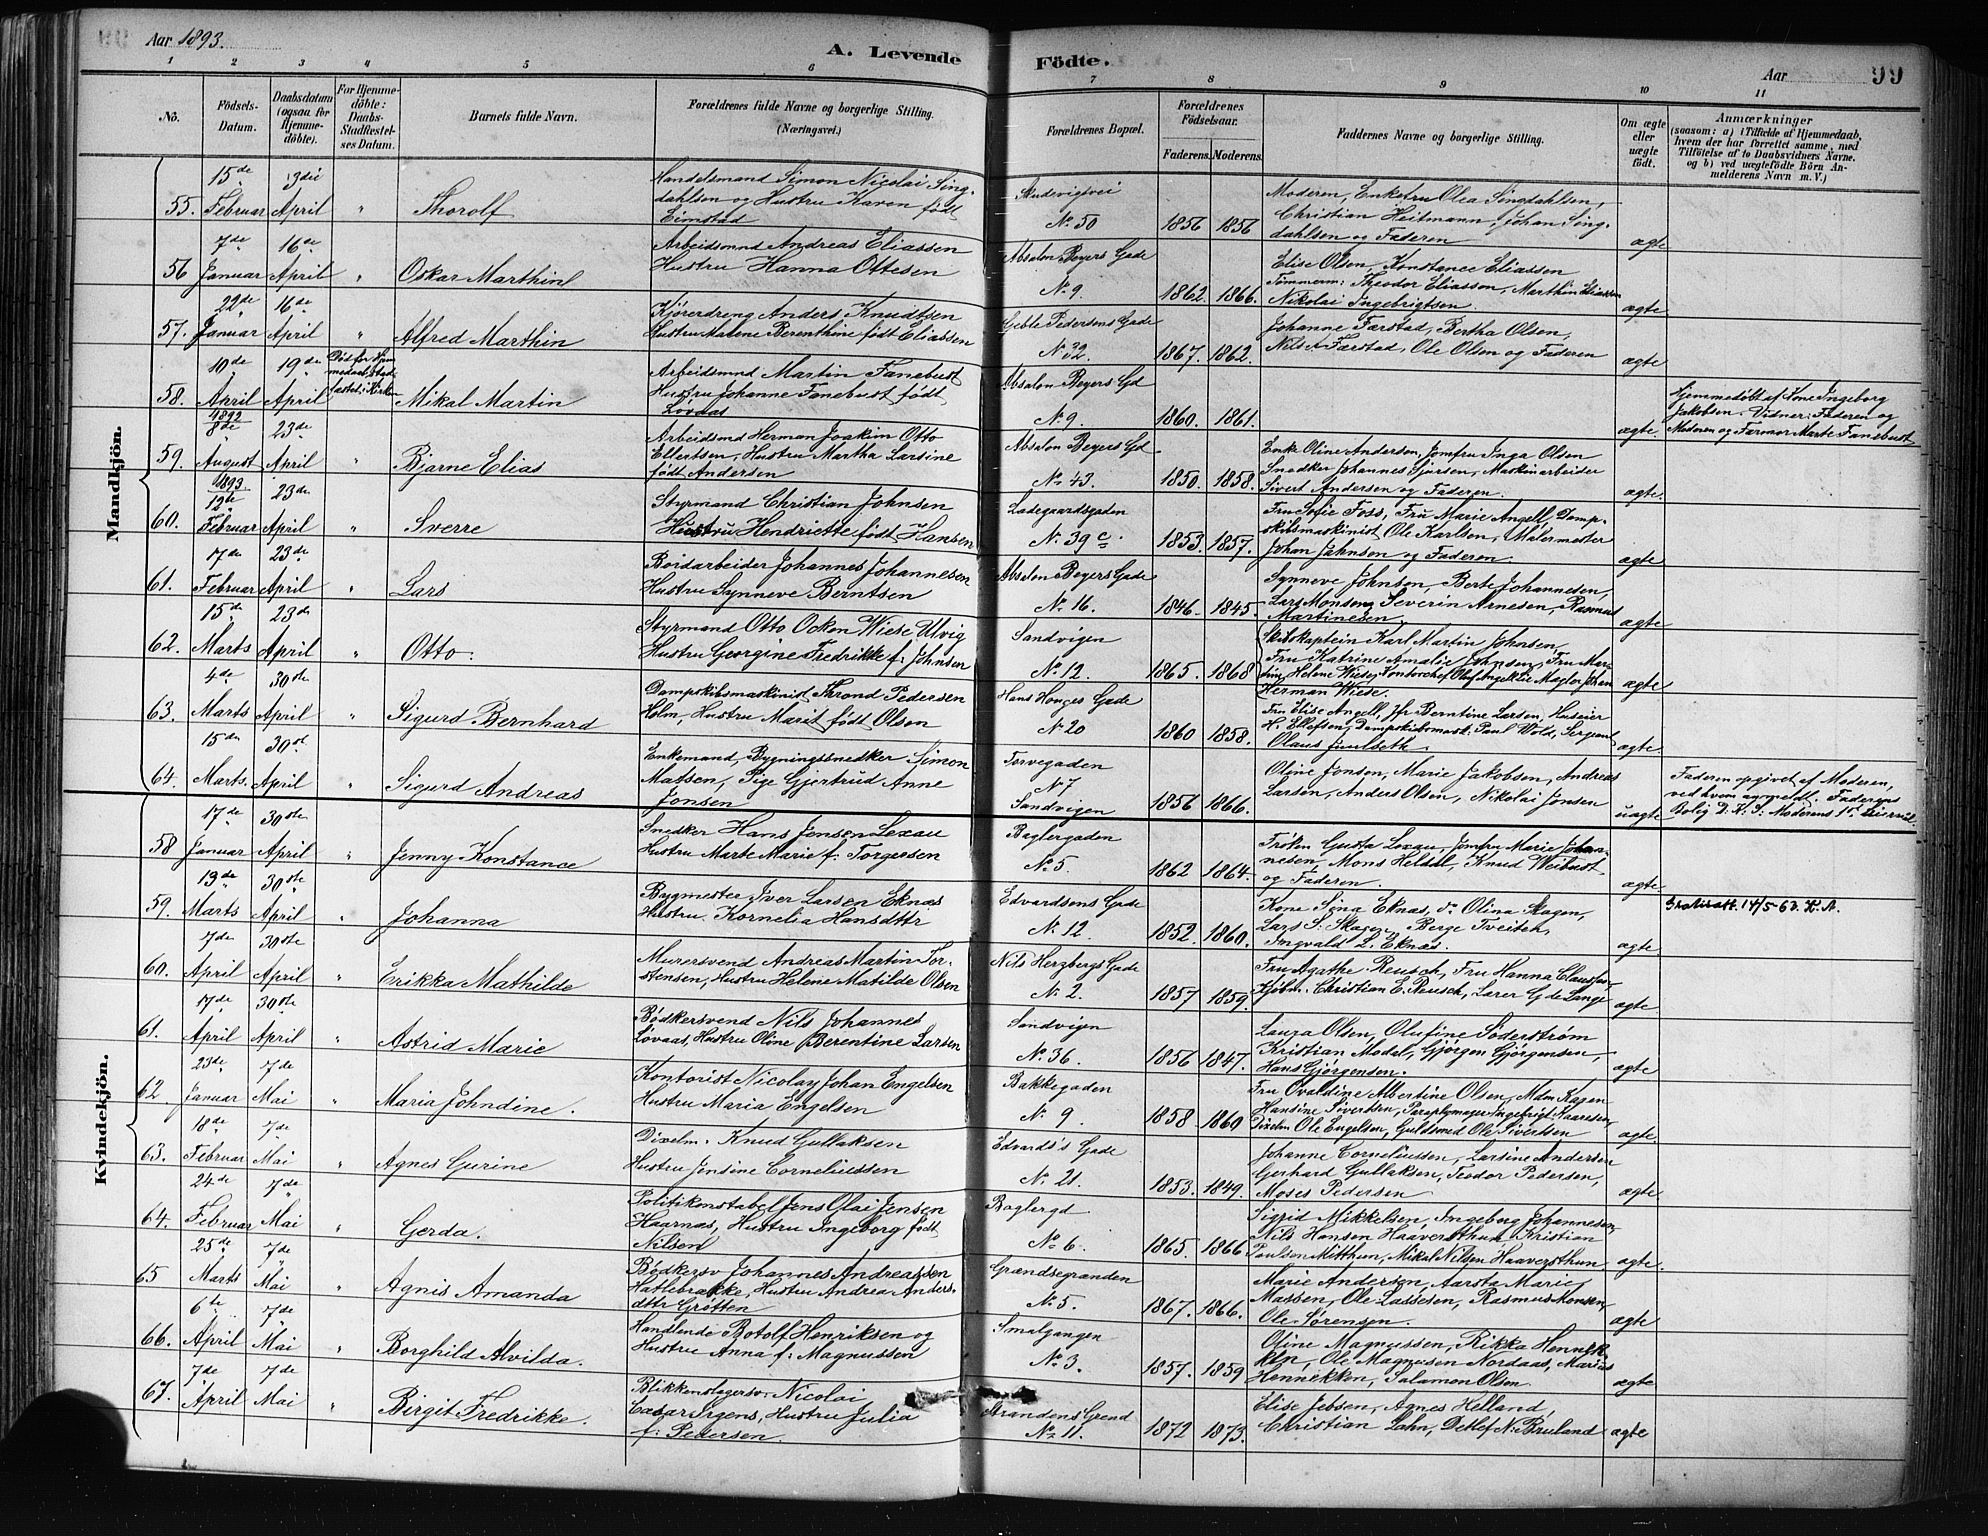 Aar 1893.
A. Levende Födte.
Aar
99
1 2 3 4 5 6 7 8 9 10 11
Nô.
Födsels-Datum.
Daabsdatum (ogsaa for Hjemmedøbte).
For Hjemmedøbte: Daabs-Stadfæstelses Datum.
Barnets fulde Navn.
Forældrenes fulde Navne og borgerlige Stilling. (Næringsvei.)
Forældrenes Bopæl.
Forældrenes Födselsaar. Faderens. Moderens.
Faddernes Navne og borgerlige Stilling.
Om ægte eller uægte født.
Anmærkninger (saasom: a) i Tilfælde af Hjemmedaab, hvem der har forrettet samme, med Tilføielse af to Daabsvidners Navne, og b) ved uægtefödte Börn Anmelderens Navn m. V.)
Mandkjön.
55. 15de Februar 3die April " Thorolf
Handelsmand Simon Nicolai Singdahlsen og Hustru Karen født Eimstad
Skudevigsvei No 50 1856 1856
Moderen, Enkefru Olea Singdahlsen, Christian Heitmann, Johan Singdahlsen og Faderen ægte
56 7de Januar 16de April " Oskar Marthin
Arbeidsmnd Andreas Eliassen Hustru Hanna Ottesen
Absalon Beyers Gade No 9. 1862. 1866.
Elise Olsen, Konstance Eliassen Tømmerm: Theodor Eliasson, Marthin Eliassen Nikolai Ingebrigtsen. ægte
57. 22de Januar 16de April " Alfred Marthin
Kjøredreng Anders Knudtsen Hustru Malene Berenthine født Eliassen
Geble Pedersens Gade No 32. 1867. 1862.
Johanne Farstad, Bertha Olsen, Nils A Farstad, Ole Olsen og Faderen ægte
58. 10de April 19de April Mikal Martin
Arbeidsmnd Martin Fanebust Hustru Johanne Fanebust født Løvaas
Absalon Beyers Gd No 9. 1860. 1861. ægte.
Hjemmedøbt af Kone Ingeborg Jakobsen. Vidner: Faderen og Moderen og Farmor Marte Fanebust
59. 1892 8de August 23de April " Bjarne Elias
Arbeidsmd Herman Joakim Otto Ellertsen, Hustru Martha Larsine født Andersen
Absalon Beyers Gd No 43. 1850. 1858.
Enke Oline Andersen, Jomfru Inga Olsen Snedker Johannes Sjursen, Maskinarbeider Sivert Andersen og Faderen. ægte.
60. 1893 12te Februar 23de April " Sverre
Styrmand Christian Johnsen Hustru Hendriette født Hansen
Ladegaardsgaden No. 39 c. 1853. 1857.
Fru Sofie Foss, Fru Marie Angell, Dampskibsmaskinist Ole Karlsen, Malermester Johan Johnsen og Faderen. ægte
61. 17de Februar 23de April " Lars
Boidarbeider Johannes Johannesen Hustru Synneve Berntsen
Absalon Beyers Gade No. 16. 1846. 1845.
Synneve Johnsen, Berte Johannesen, Lars Monsen, Severin Arnesen, Rasmus Martinesen. ægte
62. 15de Marts 23de April " Otto.
Styrmand Otto Ocken Wiese Ulvig Hustru Georgine Fredrikke f: Johnsen
Sandvigen No 12. 1865. 1868
Skibskaptein Karl Martin Johnsen, Fru Katrine Amalie Johnsen, Fru Martine Helene Wiese, Kontorchef Oluf Magler Johan Herman Wiese. ægte
63. 4de Marts 30te April " Sigurd Bernhard
Dampskibsmaskinist Thrond Pedersen Holm, Hustru Marit født Olsen
Hans Hauges Gade No 20 1860 1858.
Fru Elise Angell, Jfr Berntine Larsen, Huseier H. Ellefsen, Dampskibsmask: Paul Wold, Sergeant Olaus Juulseth. ægte
64. 15de Marts. 30te April " Sigurd Andreas
Enkemand, Bygningssnedker Simon Matsen, Pige Gjertrud Anne Jonsen
Torvegaden No 7 Sandvigen 1856 1866.
Oline Jonsen, Marie Jakobsen, Andreas Larsen, Anders Olsen, Nikolai Jonsen uægte
Faderen opgivet af Moderen, ved hvem anmeldt. Faderens Bolig D. K. S: Moderens
Kvindekjön.
58 17de Januar 30te April " Jenny Konstance
Snedker Hans Jensen Lexau Hustru Marte Marie f: Torgersen
Baglergaden No 5. 1862 1864.
Frøken Gusta Lexau, Jomfru Marie Johannesen, Mons Heldal, Knud Weibust og Faderen. ægte
59. 13de Marts 30te April " Johanna
Bygmester Iver Larsen Eknas Hustru. Kornelia Hansdttr
Edvardsens Gade No 12. 1852. 1860.
Kone Signa Eknas, do Olina Skagen, Lars S. Skagen, Berge Tveiteh, Ingvald L. Eknæs. ægte
14/5-63. K. A.
60. 7de April 30te April " Erikka Mathilde
Murersvend Andreas Martin Torstensen, Hustru Helene Matilde Olsen
Nils Herzbergs Gade No. 2. 1857 1859.
Fru Agathe Reusch, Fru Hanna Kjøbm. Christian E. Reusch, Lærer G de Lange ægte
61. 17de April 30te April " Astrid Marie
Bødkersvend Nils Johannes Løvaas, Hustru Oline Berentine Larsen
Sandvign No. 36. 1856 1847.
Laura Olsen, Olufine Söderstrøm Kristian Modal, Gjörgen Gjörgensen, Hans Gjørgensen. ægte
62 23de Januar 7de Mai " Maria Johndine.
Kontorist Nicolay Johan Engelsen Hustru Maria Engelsen
Bakkegaden No. 9 1858 1860
Fru Ovaldine Albertine Olsen, Mdm Karen Hansine Sivertsen, Paraplymager Ingebrigt Kaaresen, Pixelm Ole Engelsen, Guldsmed Ole Sivertsen ægte
63. 18de Februar 7de Mai " Agnes Gurine
Dixelm. Knud Gullaksen Hustru Jensine Corneliussen
Edvards's Gade No 21. 1853. 1849.
Johanne Corneliussen, Larsine Andersen Gerhard Gullaksen, Teodor Pedersen, Moses Pedersen ægte
64. 24de Februar 7de Mai " Gerda.
Politikonstabel Jens Olai Jensen Haarnæs, Hustru Ingeborg født Nilsen
Baglergd No 6. 1865. 1866
Sigrid Mikkelsen, Ingeborg Johannesen, Nils Hansen Haaversthun, Kristian Poulsen Mitthun, Mikal Nilsen Haaversthun ægte.
65 25de Marts 7de Mai " Agnis Amanda
Bødkersv Johannes Andreassen Hatlebrække, Hustru Andrea Andersdttr Grotten
Grændsegranden No. 5. 1867. 1866.
Marie Andersen, Aarsta Marie Massen, Ole Lassesen, Rasmus Monsen, Ole Sørensen. ægte
66. 6te April 7de Mai " Borghild Alvilda.
Handlende Botolf Henriksen og Hustru Anna f: Magnussen
Smalgangen No. 3. 1857. 1859
Oline Magnussen, Rikka Hennekken, Ole Magnusen Nordaas, Marius Hennekken, Salamon Olsen ægte
67. 7de April 7de Mai " Birgit Fredrikke.
Blikkenslagersv. Nicolai Cæsar Irgens, Hustru Julia f: Pedersen.
Strandens Grend No. 11. 1872 1873.
Elise Jebsen, Agnes Helland, Christian Lahn, Detlef N. Bruland ægte